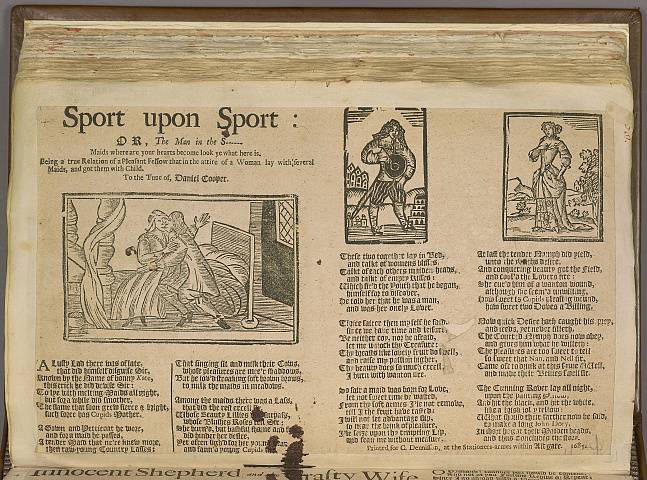 Sport upon Sport :
OR, The Man in the S------
Maids where are your hearts become look ye what here is.
Being a true Relation of a Pleasant Fellow that in the attire of a Woman lay with several
Maids, and got them with Child.
To the Tune of, Daniel Cooper.
A Lusty Lad there was of late,
that did himself disguise Sir,
Known by the Name of bonny Kate,
this trick he did devise Sir:
To lye with melting Maids all night,
but for a while did smother,
The flame that soon grew fierce & bright,
such fires has Cupids Mother.
A Gown and Petticoat he wore,
and for a maid he passes,
A tender Maid that ne'r knew more,
then raw young Country Lasses:
That singing sit and milk their Cows,
whose pleasures are meer shaddows,
But he lov'd straining soft brown brows,
to milk the maids in meadows.
Among the maids there was a Lass,
that did the rest excell
Whose Beauty Lillies
whose Blushes Roses tell Sir:
She
did hinder her desire,
Yet often
and fann'd a young Cupids
These two together lay in Bed,
and talkt of womens blisses,
Talkt of each others maiden-heads,
and talkt of empty kisses:
Which fir'd the youth that he began,
himself for to discover,
He told her that he was a man,
and was her onely Lover.
Thrice fairer then my self he said,
since we have time and leisure,
Be neither coy, nor be afraid,
let me unlock thy Treasure:
Thy breasts like lovely fruit do swell,
and raise my passion higher,
Thy beauty does so much excell,
I burn with wanton fire.
So fair a maid was born for Love,
let not sweet time be wasted,
From thy soft armes I'le not remove,
till I the fruit have tasted:
I will not let advantage slip,
to pass the bank of pleasure,
I'le seize upon thy tempting Lip,
and scan me without measure.
At last the tender Nymph did yield,
unto the Youths desire,
And conquering beauty got the Field,
and cool'd the Lovers fire:
She cue'd him of a wanton wound,
although she seem'd unwilling,
How sweet is Cupids stealing wound,
how sweet two Doves a Billing.
Now quick Desire hath caught his prey,
and feeds, yet never filleth,
The Country Nymph does now obey,
and gives him what he willeth:
The pleasures are too sweet to tell,
so sweet that Nan, and Nell sir,
Came oft to drink at this same Well,
and made their Bellies swell sir.
The Cunning Rover lay all night,
upon the panting
And hit the black, and hit the white,
like a
What should their further now be said,
to make a long John Dory,
In short he got their Maiden heads,
and thus concludes the story.
Printed for C. Dennisson, at the Stationers-armes within Aldgate.
1685
Innocent Shepherd and Crafty Wife